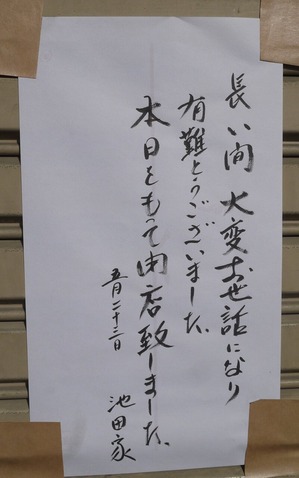 長い間大変お世話になり
有難とうございました、
本日をもって閉店致しました、
五月二十三日
池田家